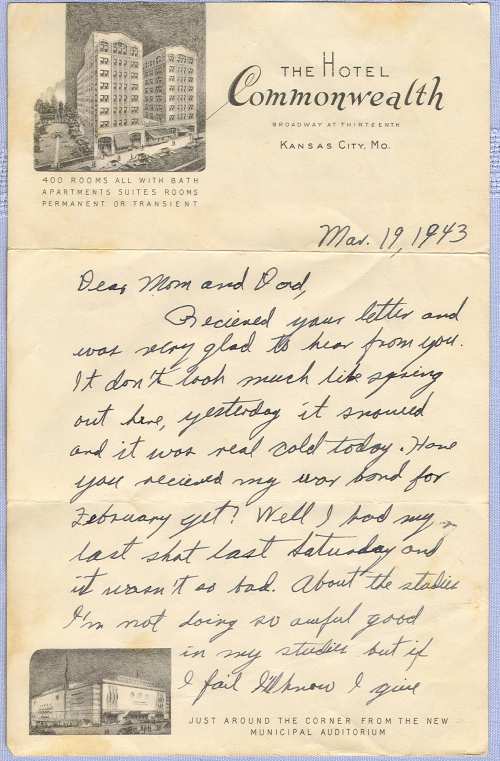 THE HOTEL
Commonwealth
BROADWAY AT THIRTEENTH
KANSAS CITY, MO.
400 ROOMS ALL WITH BATH
APARTMENTS SUITES ROOMS
PERMANENT OR TRANSIENT
Mar. 19, 1943
Dear Mom and Dad,
Recieved your letter and
was very glad to hear from you.
It don't look much like spring
out here, yesterday it snowed
and it was real cold today. Have
you recieved my war bond for
February yet? Well I had my
last shot last Saturday and
it wasn't so bad. About the studies
I'm not doing so awful good
in my studies but if
I fail I'll know I give
JUST AROUND THE CORNER FROM THE NEW
MUNICIPAL AUDITORIUM